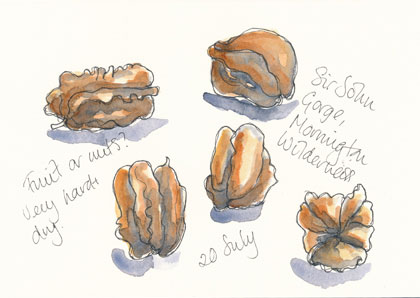 Sir John
Gorge,
Mornington
Wilderness
Fruit or nuts?
Very hard &
dry.
20 July